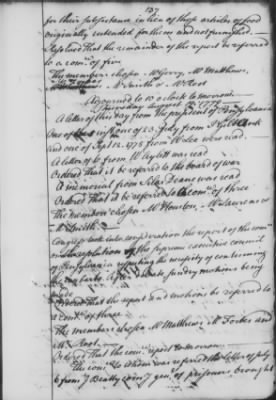 137
for their subsistance in lieu of those articles of food
originally intended for them and not furnished.
Resolved that the remainder of the report be referred
to a comee. of five
The members chosen Mr Gerry, Mr Matthews,
Mr Smith & Mr Root
Adjourned to 10 o'Clock to morrow.
Thursday August 12. 1779
A letter of this day from the president of Pensylvania
One of 23 July from
and one of Sept 12. 1778 from W Lee were read.
A letter of 6 from was read
Ordered that it be referred to the board of war
A memorial from Silas Deane was read
Ordered that it be referred to a comee. of three
The members chosen Mr Houston, Mr Laurens &
Mr Smith
Congress took into consideration the report of the comee.
on resolution of the supreme executive council
of Pensylvania respecting the necessity of continuing
the embargo After debate sundry motions being
made
Ordered that the report and motions be referred to
a comee. of three
The members chosen Mr Matthews Mr Forbes and
Mr Root.
Ordered the comee. report to morrow
The comee. to whom was referred the letter of July
6 from J Beatty comy genl of prisoners brought